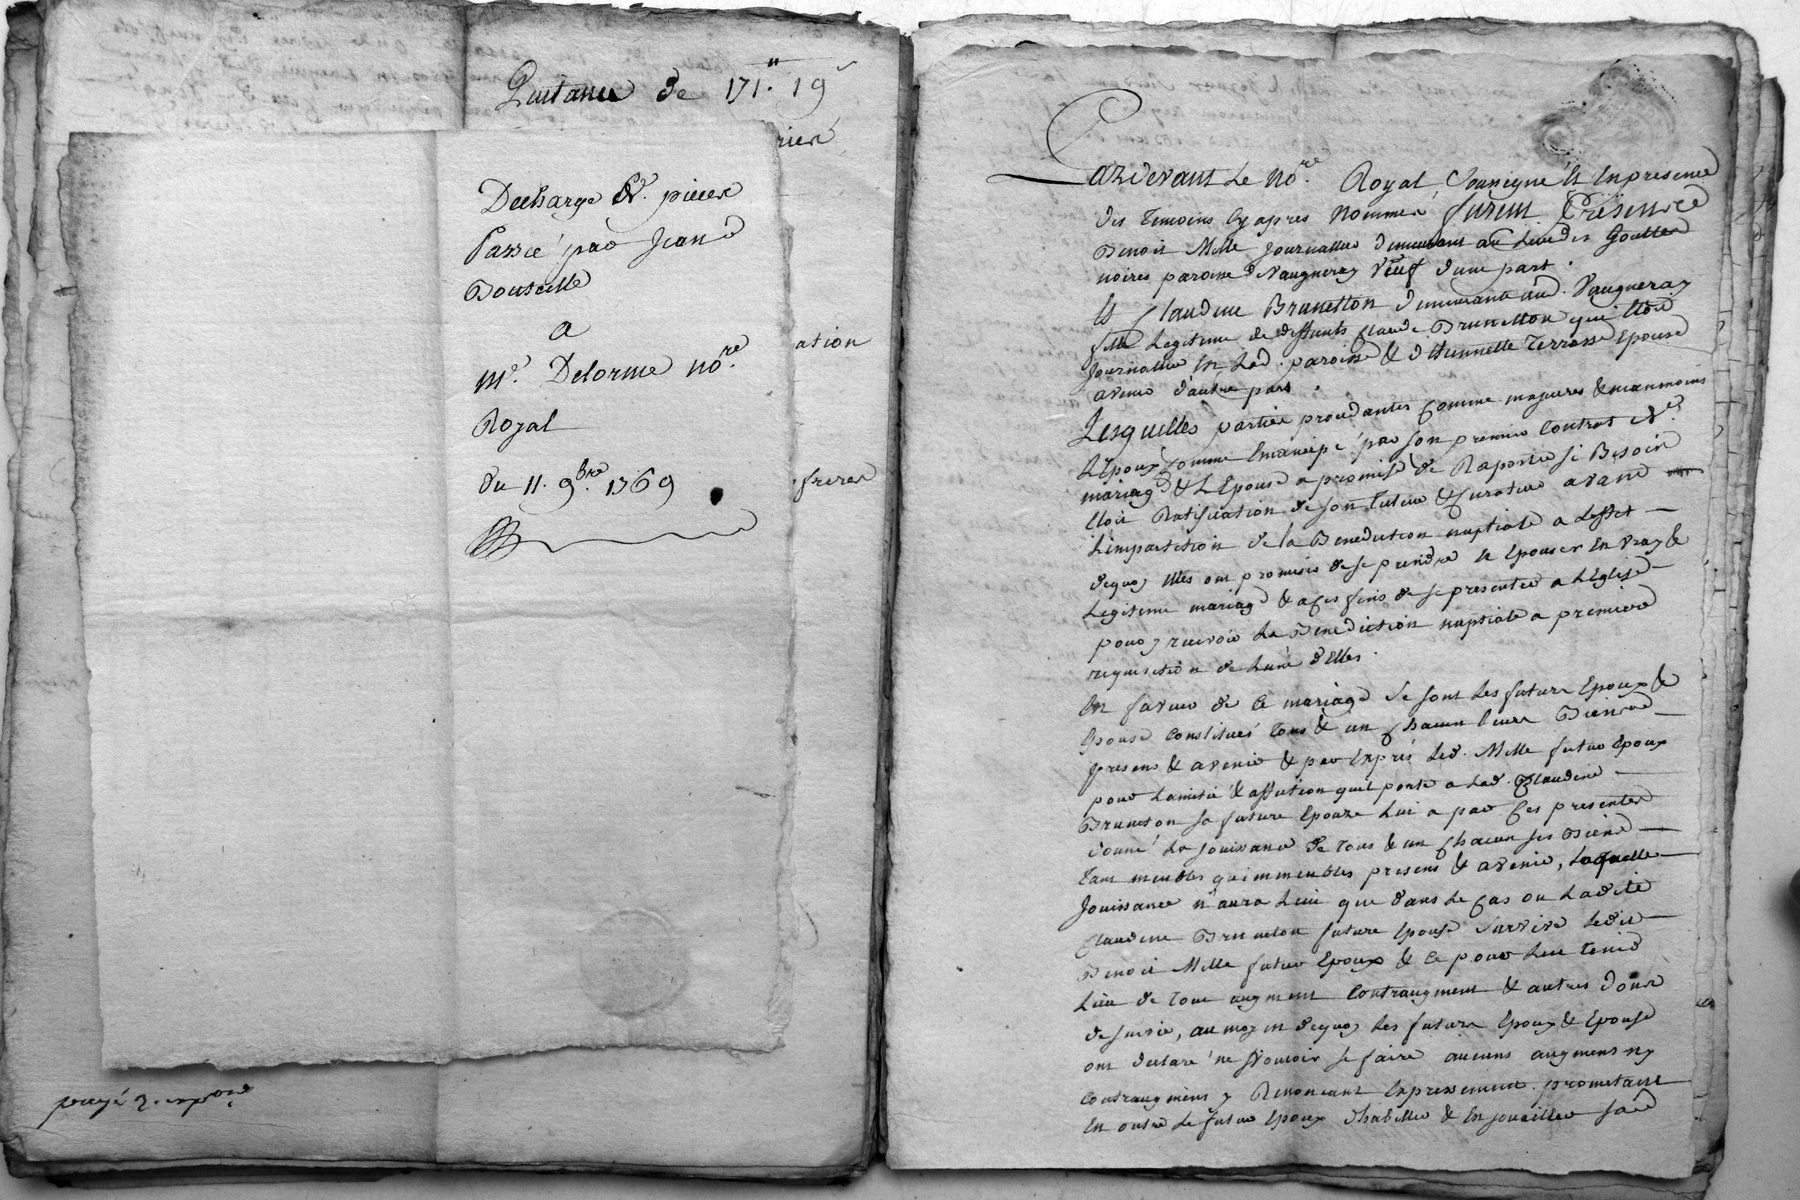 Quitance de 171.ʰ 19ˢ
Decharge de pieces
Passé par Jean
Bouteille
a
Me. Delorme no.re
Royal
du 11. 9bre. 1769
rier
ation
freres
Pardevant Le no.re Royal Soussigné Et En presence
des Temoins Cy apres Nommés furent Presence
Benoit Mille Journallier demeurant au Lieu des Gouttes
noires paroisse de Vaugneray Veuf d'une part.
Et Claudine Brunetton demeurante aud. Vaugneray
fille Legitime de deffunts Claude Brunetton qui Etoit
Journallier En Lad. paroisse & d'Etiennette Terrasse Epouse
avenir d'autre part.
Lesquelles parties procedantes Comme majeures & neanmoins
L'Epoux Comme Emancipé par Son premier Contrat de
mariage & L'Epouse a promise de Raporter Si Besoin
Etoit Ratification de Son Tuteur & Curateur avant
L'impartition de la Benediction nuptiale a L'effet
dequoy Elles ont promises de Se prendre et Epouser En vray &
Legitime mariage & a Ces fins de Se presenter a L'Eglise
pour y recevoir La Benediction nuptiale a premiere
requisition de L'une d'Elles.
En faveur de Ce mariage Se Sont Les futurs Epoux &
Epouse Constitués Tous & un Chacun Leurs Biens
presens & avenir & par Exprés Led. Mille futur Epoux
pour L'amitié & affection qu'il porte a Lad. Claudine
Brunetton Sa future Epouze Lui a par Ces presentes
donné La Jouissance de Tous & un Chacun Ses Biens
Tant meubles qu'immeubles presens & avenir, Laquelle
Jouissance n'aura Lieu que dans Le Cas ou Ladite
Claudine Brunetton future Epouse Survive Ledit
Benoit Mille futur Epoux & Ce pour Lui Tenir
Lieu de Tout augment Contraugment & autres dons
de Survie, au moyen dequoy Les futurs Epoux & Epouse
ont declaré ne Vouloir Se faire aucuns augmens ny
Contraugmens y Renonceant Expressement. prometant
En outre Le futur Epoux d'habiller & Enjoailler Sad.